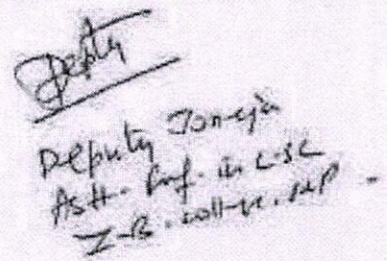 Deputy
Deputy Joneja
Astt. Prof. in C.Sc
I.B. college. PNP.